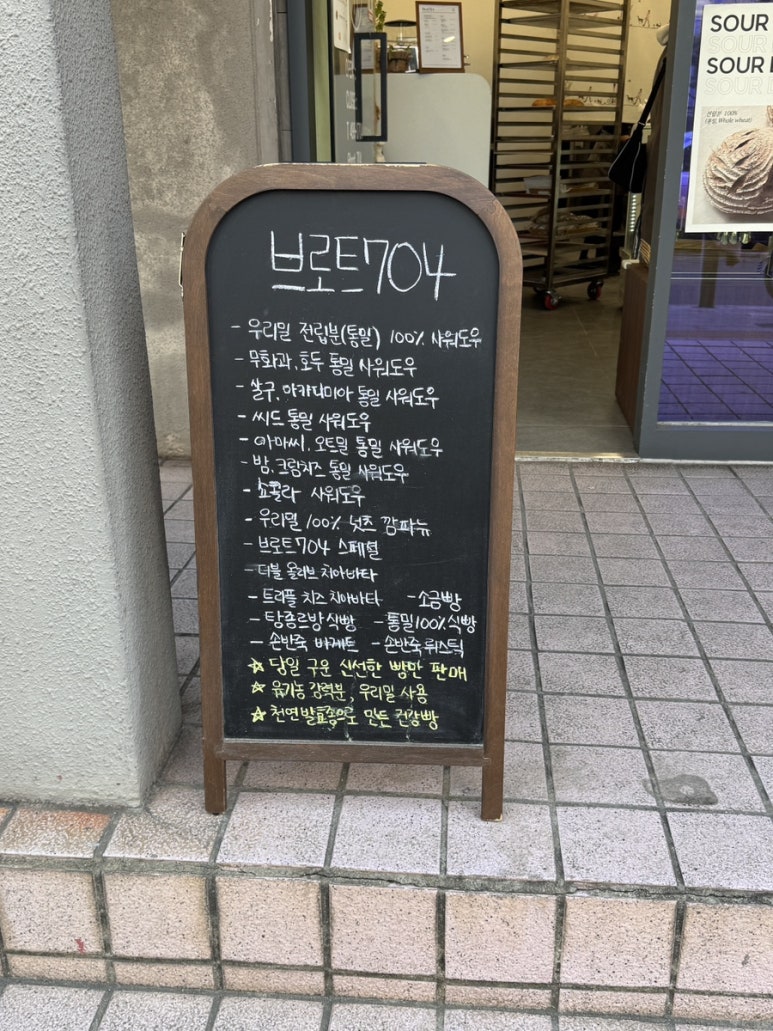 브로트704
- 우리밀 전립분(통밀) 100% 사워도우
- 무화과, 호두 통밀 사워도우
- 살구, 마카다미아 통밀 사워도우
- 씨드 통밀 사워도우
- 아마씨, 오트밀 통밀 사워도우
- 밤, 크림치즈 통밀 사워도우
- 쇼콜라 사워도우
- 우리밀 100% 넛츠 깜파뉴
- 브로트704 스페셜
- 더블 올리브 치아바타
- 트리플 치즈 치아바타 - 소금빵
- 탕종르방식빵 - 통밀100%식빵
- 손반죽 바게트 - 손반죽 뤼스틱
☆ 당일 구운 신선한 빵만 판매
☆ 유기농 강력분, 우리밀 사용
☆ 천연발효종으로 만든 건강빵
SOUR
SOUR
SOUR
SOUR
전립분 100%
Whole wheat)